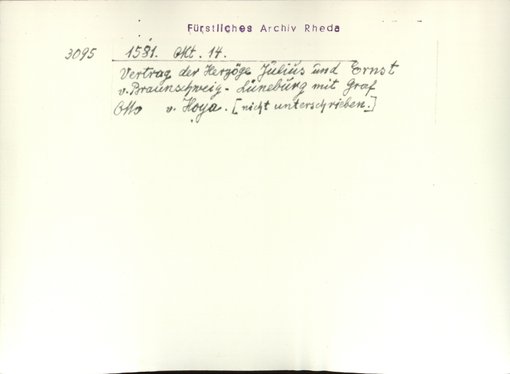 Fürstliches Archiv Rheda
3095 1581. Okt. 14.
Vertrag der Herzöge Julius und Ernst
v. Braunschweig-Lüneburg mit Graf
Otto v. Hoya. [nicht unterschrieben.]